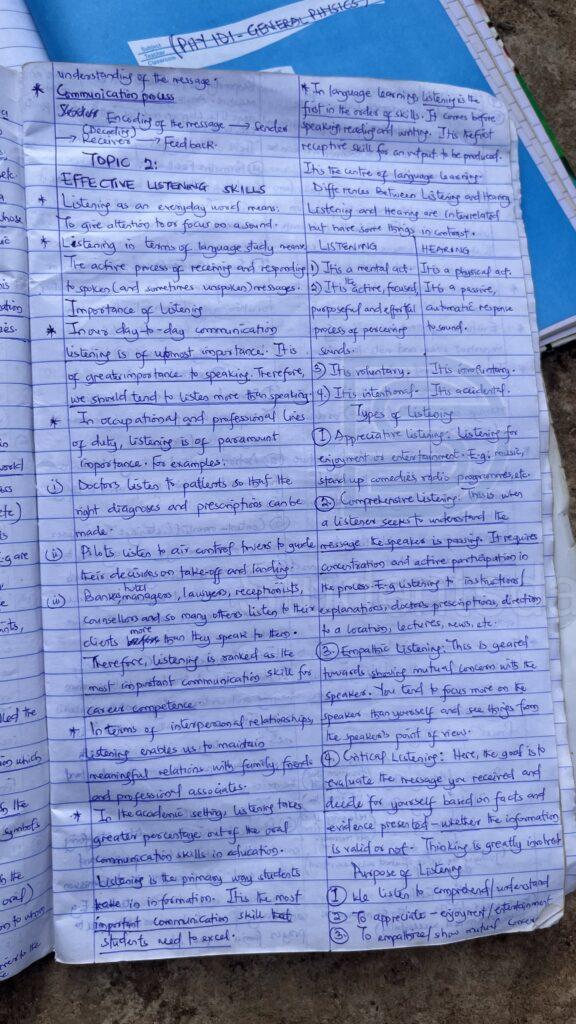 Subject
Teacher
Classroom
(PHY 101 - GENERAL PHYSICS)
understanding of the message.
* Communication process
Encoding of the message → Sender
(Decoding)
→ Receiver → Feedback.
TOPIC 2:
EFFECTIVE LISTENING SKILLS
* Listening as an everyday word means:
To give attention to or focus on a sound.
* Listening in terms of language study means
The active process of receiving and responding
to spoken (and sometimes unspoken) messages.
Importance of Listening
* In our day-to-day communication
listening is of upmost importance. It is
of greater importance to speaking. Therefore,
we should tend to listen more than speaking.
* In occupational and professional lines
of duty, listening is of paramount
importance. For examples:
(i) Doctors listen to patients so that the
right diagnoses and prescriptions can be
made.
(ii) Pilots listen to air control towers to guide
their decisions on take-off and landing.
(iii) Banks, hotel managers, lawyers, receptionists,
counsellors and so many others listen to their
clients more than they speak to them.
Therefore, listening is ranked as the
most important communication skill for
career competence.
* In terms of interpersonal relationships,
listening enables us to maintain
meaningful relations with family, friends
and professional associates.
* In the academic setting, listening takes
greater percentage out of the oral
communication skills in education.
Listening is the primary way students
take in information. It is the most
important communication skill that
students need to excel.
* In language learning, listening is the
first in the order of skills. It comes before
speaking, reading and writing. It is the first
receptive skill for an output to be produced.
It is the centre of language learning.
Differences Between Listening and Hearing
Listening and Hearing are interrelated
but have some things in contrast.
LISTENING HEARING
1) It is a mental act. It is a physical act.
2) It is active, focused, It is a passive,
purposeful and effortful automatic response
process of perceiving to sound.
sounds.
3) It is voluntary. It is involuntary.
4) It is intentional. It is accidental.
Types of Listening
1 Appreciative listening: Listening for
enjoyment or entertainment. E.g. music,
stand up comedies, radio programmes, etc.
2. Comprehensive Listening: This is when
a listener seeks to understand the
message the speaker is passing. It requires
concentration and active participation in
the process. E.g listening to instructions/
explanations, doctors prescriptions, direction
to a location, lectures, news, etc.
3. Empathic Listening: This is geared
towards showing mutual concern with the
speaker. You tend to focus more on the
speaker than yourself and see things from
the speaker's point of view.
4. Critical Listening: Here, the goal is to
evaluate the message you received and
decide for yourself based on facts and
evidence presented - whether the information
is valid or not. Thinking is greatly involved
Purpose of Listening
1 We listen to comprehend/understand
2 To appreciate - enjoyment/entertainment
3. To empathize/show mutual concern